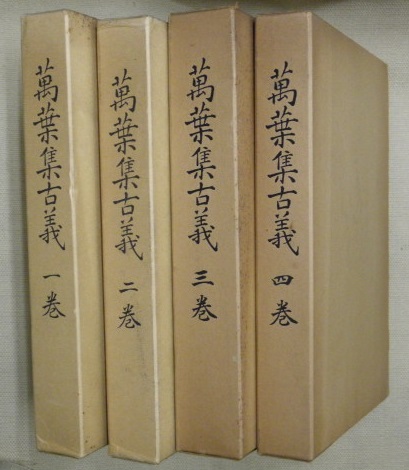 萬葉集古義 一巻
萬葉集古義 二巻
萬葉集古義 三巻
萬葉集古義 四巻